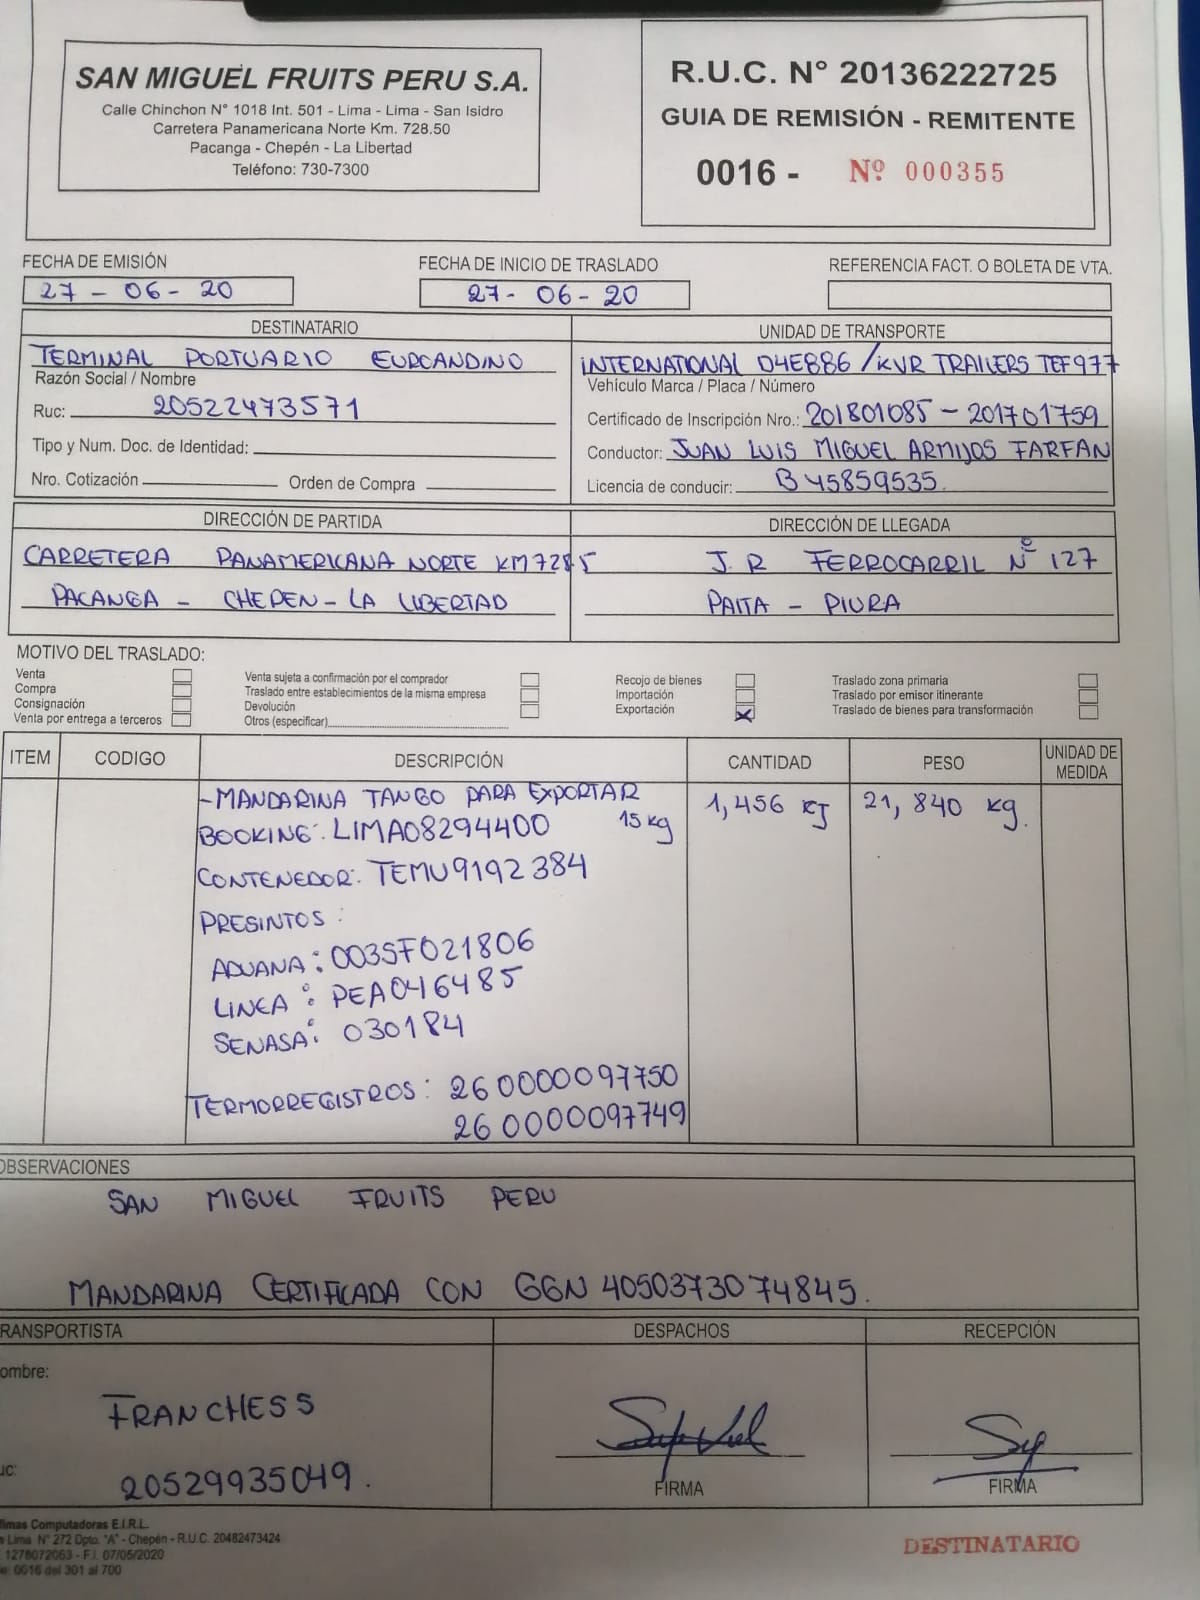 SAN MIGUEL FRUITS PERU S.A.
Calle Chinchon N° 1018 Int. 501 - Lima - Lima - San Isidro
Carretera Panamericana Norte Km. 728.50
Pacanga - Chepén - La Libertad
Teléfono: 730-7300
R.U.C. N° 20136222725
GUIA DE REMISIÓN - REMITENTE
0016 - Nº 000355
FECHA DE EMISIÓN
27 - 06 - 20
FECHA DE INICIO DE TRASLADO
27 - 06 - 20
REFERENCIA FACT. O BOLETA DE VTA.
DESTINATARIO
TERMINAL PORTUARIO EUROANDINO
Razón Social / Nombre
Ruc: 20522473571
Tipo y Num. Doc. de Identidad:
Nro. Cotización Orden de Compra
UNIDAD DE TRANSPORTE
INTERNATIONAL D4E886 / KVR TRAILERS TEF977
Vehículo Marca / Placa / Número
Certificado de Inscripción Nro.: 201801085 - 201701759
Conductor: JUAN LUIS MIGUEL ARMIJOS FARFAN
Licencia de conducir: B45859535.
DIRECCIÓN DE PARTIDA
CARRETERA PANAMERICANA NORTE KM 7285
PACANGA - CHEPEN - LA LIBERTAD
DIRECCIÓN DE LLEGADA
J.R FERROCARRIL Nº 127
PAITA - PIURA
MOTIVO DEL TRASLADO:
Venta
Compra
Consignación
Venta por entrega a terceros
Venta sujeta a confirmación por el comprador
Traslado entre establecimientos de la misma empresa
Devolución
Otros (especificar)
Recojo de bienes
Importación
Exportación X
Traslado zona primaria
Traslado por emisor itinerante
Traslado de bienes para transformación
ITEM CODIGO DESCRIPCIÓN CANTIDAD PESO UNIDAD DE MEDIDA
- MANDARINA TANGO PARA EXPORTAR 1,456 KJ 21,840 kg.
BOOKING: LIMA08294400 15 kg
CONTENEDOR: TEMU9192384
PRESINTOS:
ADUANA: 003SF021806
LINEA: PEA046485
SENASA: 030184
TERMORREGISTROS: 26 0000097750
26 0000097749
OBSERVACIONES
SAN MIGUEL FRUITS PERU
MANDARINA CERTIFICADA CON GGN 4050373074845.
RANSPORTISTA
DESPACHOS
RECEPCIÓN
ombre:
FRANCHESS
uc:
20529935049.
FIRMA
FIRMA
limas Computadoras E.I.R.L.
Lima N° 272 Dpto. "A" - Chepén - R.U.C. 20482473424
1278072063 - F.I. 07/05/2020
0016 del 301 al 700
DESTINATARIO